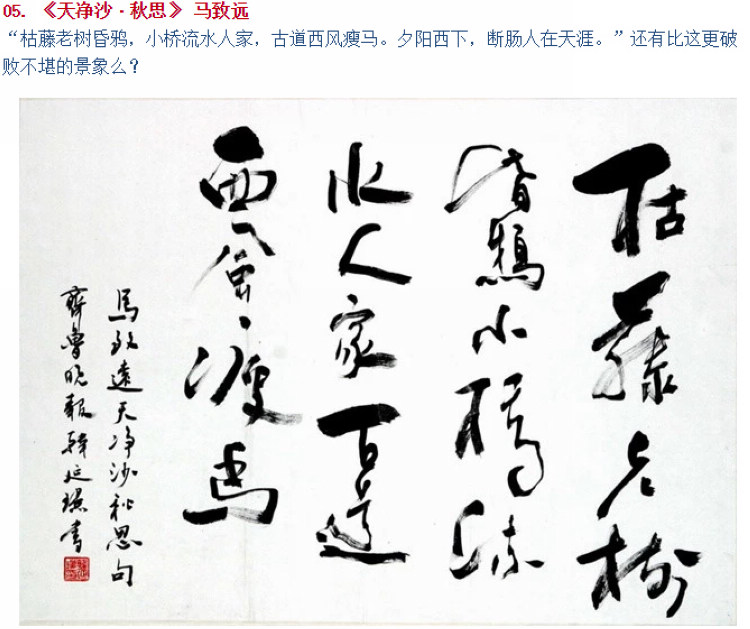 05. 《天净沙·秋思》 马致远
“枯藤老树昏鸦，小桥流水人家，古道西风瘦马。夕阳西下，断肠人在天涯。”还有比这更破
败不堪的景象么？
枯藤老树
昏鸦小桥流
水人家古道
西风瘦马
馬致遠天净沙秋思句
齊魯晚報韓延璟書